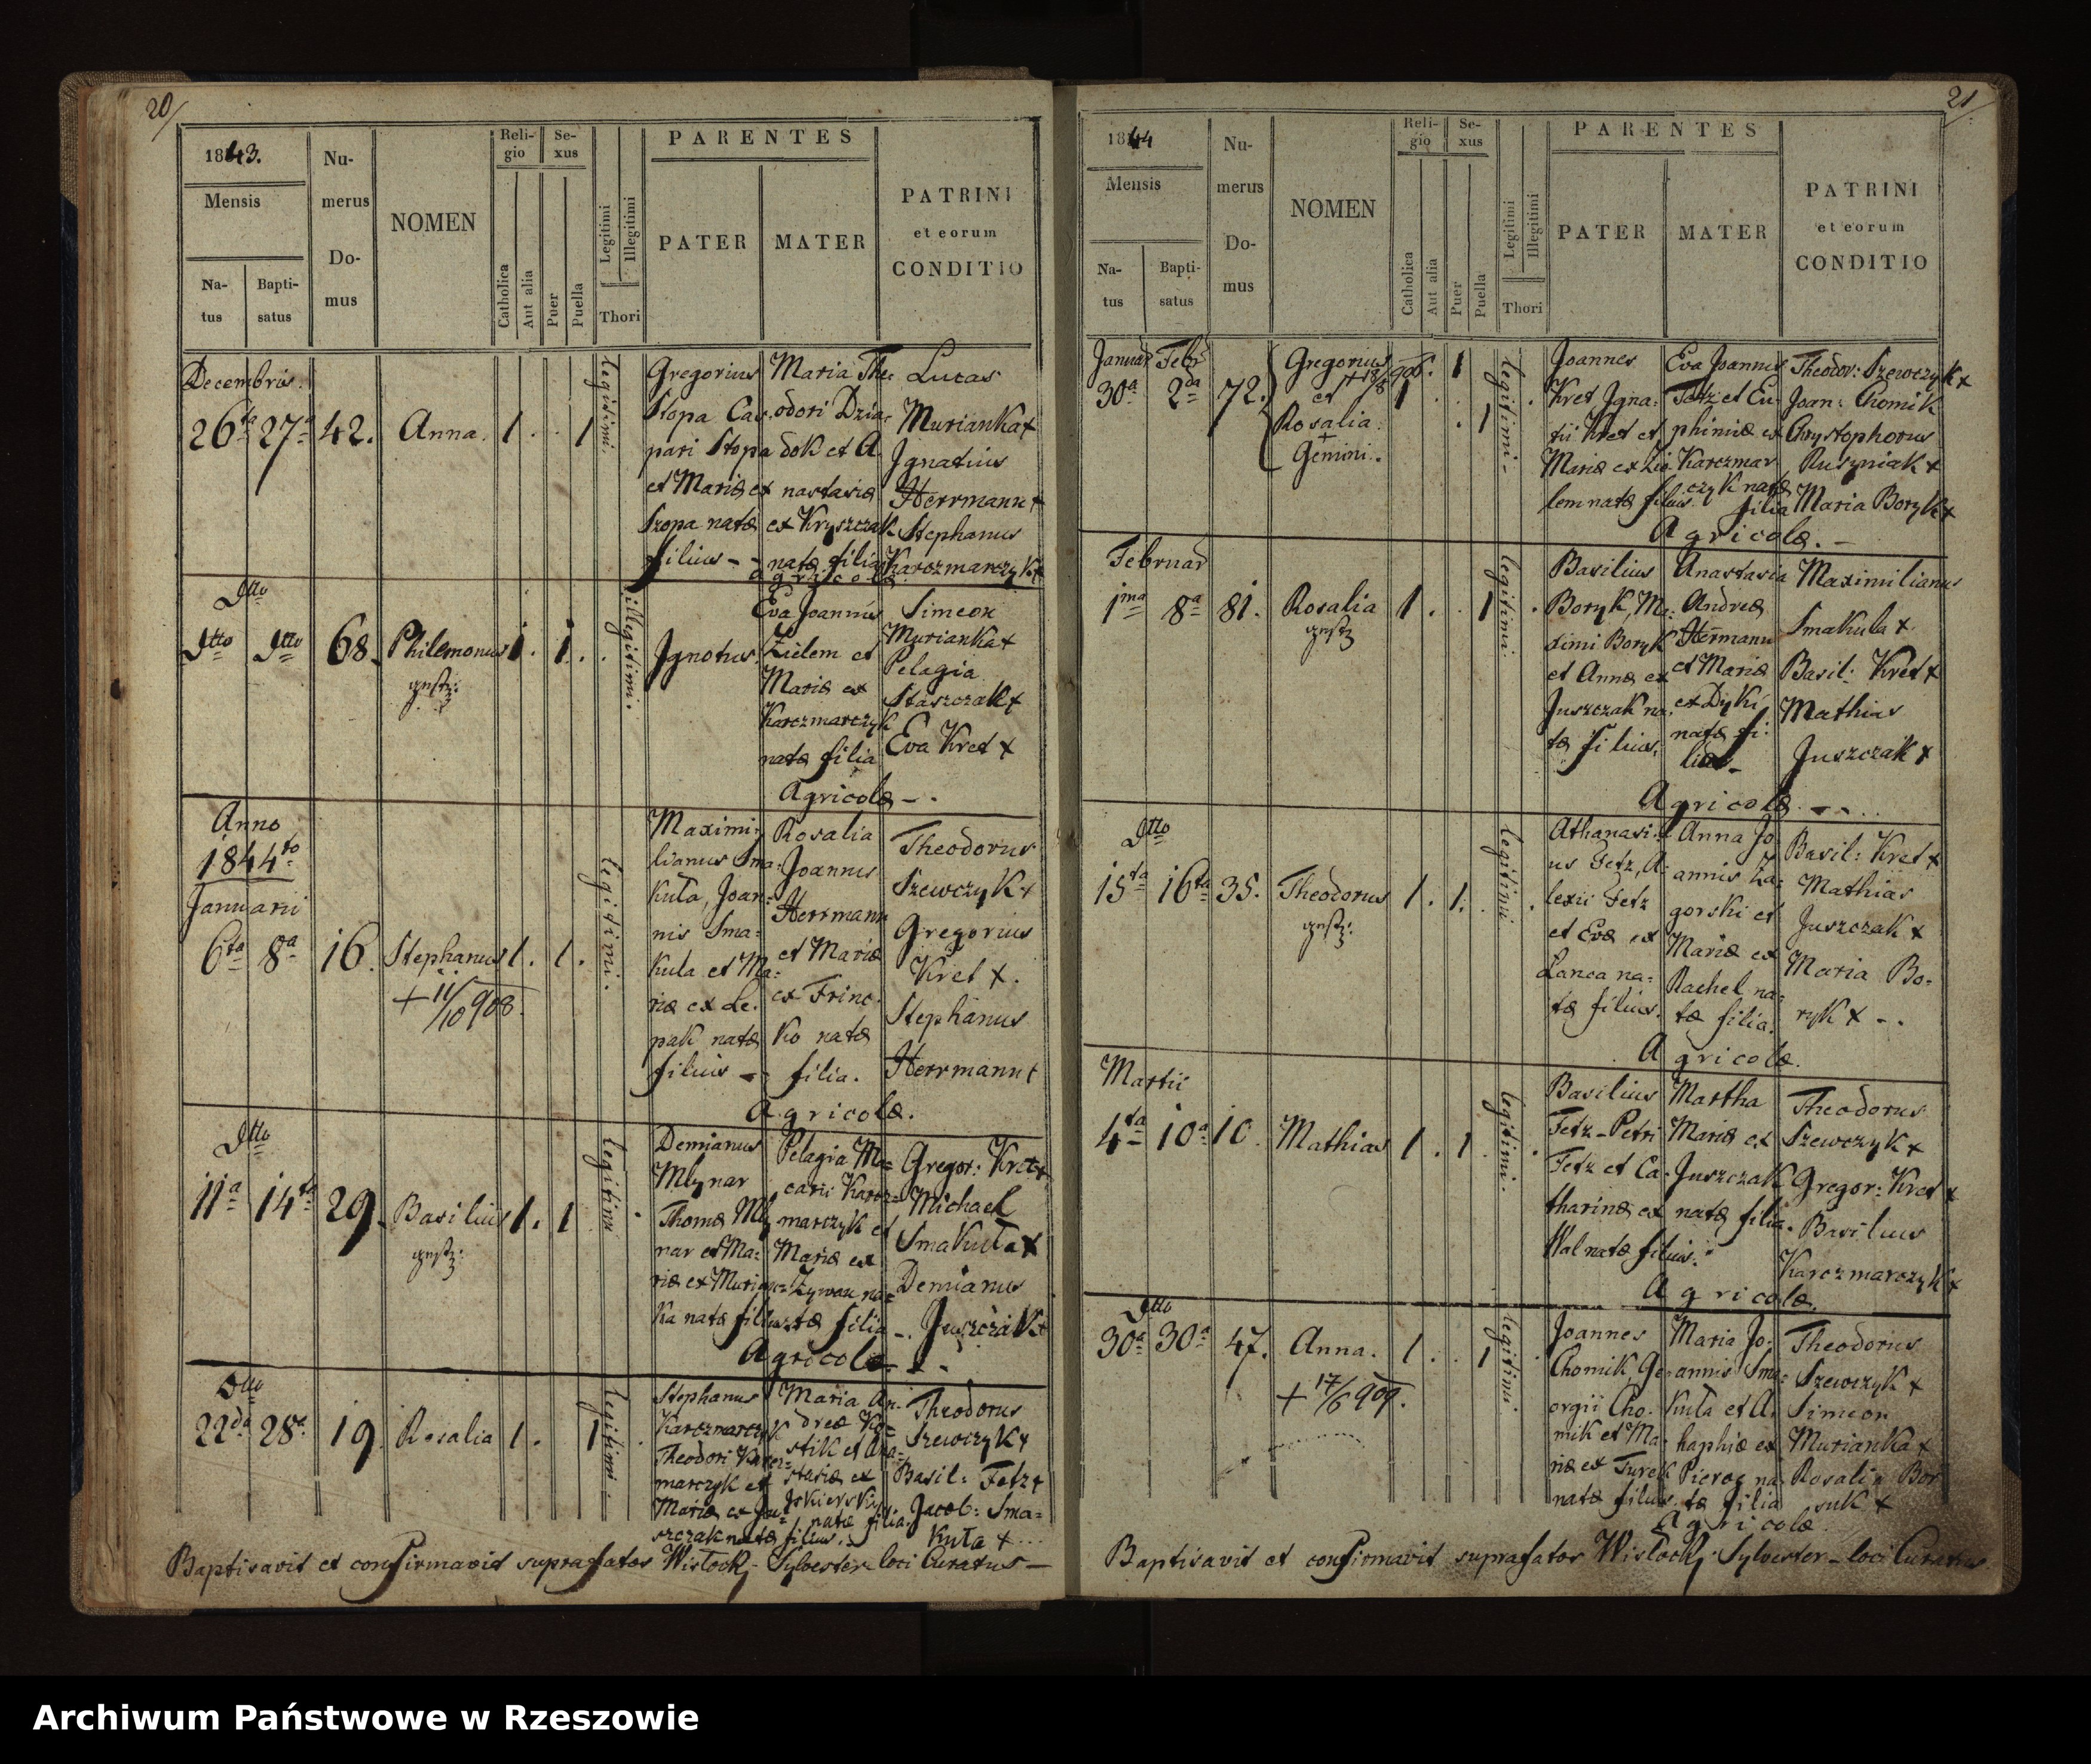 20/
1843.
Mensis
Na-
tus
Bapti-
satus
Nu-
merus
Do-
mus
NOMEN
Reli-
gio
Catholica
Aut alia
Se-
xus
Puer
Puella
Legitimi
Illegitimi
Thori
PARENTES
PATER
MATER
PATRINI
et eorum
CONDITIO
Decembris.
26ta 27a 42. Anna. 1. 1
legitimi.
Gregorius
Stopa Cas-
pari Stopa
et Mariæ ex
Szopa natæ
filius - -
Maria The-
odori Dzia-
dok et A-
nastasiæ
ex Kryszczak
natæ filia
Lucas
Murianka +
Ignatius
Herrmann +
Stephanus
Karczmarczyk +
Agricolæ
Dtto
Dtto Dtto 68. Philemonus 1. 1.
illegitimi.
Ignotus.
Eva Joannis
Zielem et
Mariæ ex
Karczmarczyk
natæ filia
Simeon
Murianka +
Pelagia
Staszczak +
Eva Kret +
Agricolæ - .
Anno
1844to
Januarii
6ta 8a 16. Stephanus 1. 1.
+ 11/10 908.
legitimi.
Maximi-
lianus Sma-
kuła, Joan-
nis Sma-
kuła et Ma-
riæ ex Le-
pak natæ
filius -
Rosalia
Joannis
Herrmann
et Mariæ
ex Frinc-
ko natæ
filia.
Theodorus
Szewczyk +
Gregorius
Kret +.
Stephanus
Herrmann +
Agricolæ.
Dtto
11a 14ta 29. Basilius 1. 1
legitimi
Demianus
Mlynar
Thomæ Mly
nar et Ma-
riæ ex Murian-
ka natæ filius
Pelagia Ma-
carii Karcz-
marczyk et
Mariæ ex
Zywax na-
tæ filia -.
Gregor: Kret +
Michael
Smakuła +
Demianus
Juszczak +
Agricolæ - -
Dtto
22da 28a 19. Rosalia 1. 1
legitimi.
Stephanus
Karczmarczyk
Theodori Karcz-
marczyk et
Mariæ ex Ju-
szczak natæ filius.
Maria An-
dreæ Ko-
stik et Ana-
stasiæ ex
natæ filia.
Theodorus
Szewczyk +
Basil: Fetz +
Jacob: Sma-
kuła + ...
Baptisavit et confirmavit suprafatos Wisłocki Sylvester loci Curatus -
21
1844
Mensis
Na-
tus
Bapti-
satus
Nu-
merus
Do-
mus
NOMEN
Reli-
gio
Catholica
Aut alia
Se-
xus
Puer
Puella
Legitimi
Illegitimi
Thori
PARENTES
PATER
MATER
PATRINI
et eorum
CONDITIO
Januar Febr
30a 2da 72. Gregorius 1
et
Rosalia. 1
+
Gemini.
legitimi -
Joannes
Kret Igna-
tii Kret et
Mariæ ex Zie-
lem natæ filius.
Eva Joannis
Fetz et Eu-
phimiæ ex
Karczmar
czyk natæ
filia
Theodor: Szewczyk +
Joan: Chomik
Chrystophorus
Rusyniak +
Maria Boryk +
Agricolæ. -
Februar
1ma 8a 81. Rosalia 1. 1
legitimi.
Basilius
Boryk, Ma-
ximi Boryk
et Annæ ex
Juszczak na-
tæ filius.
Anastasia
Andreæ
Hermann
et Mariæ
ex Dyki
natæ fi-
lia -
Maximilianus
Smakula +
Basil: Kret +
Mathias
Juszczak +
Agricolæ - - ...
Dtto
15ta 16ta 35. Theodorus 1. 1.
legitimi
Athanasi-
us Fetz, A-
lexii Fetz
et Evæ ex
Lanca na-
tæ filius.
Anna Jo
annis Za-
gorski et
Mariæ ex
Rachel na-
tæ filia.
Basil: Kret +
Mathias
Juszczak +
Maria Bo-
ryk + - .
Agricolæ.
Martii
4ta 10a 10. Mathias 1. 1
legitimi.
Basilius
Fetz - Petri
Fetz et Ca-
tharinæ ex
Wal natæ filius.
Martha
Mariæ ex
Juszczak
natæ filia.
Theodorus
Szewczyk +
Gregor: Kret +
Basilius
Karczmarczyk +
Agricolæ.
Dtto
30a 30a 47. Anna. 1. 1
+ 17/6 909.
legitimi
Joannes
Chomik, Ge-
orgii Cho-
mik et Ma-
riæ ex Turek
natæ filius.
Maria Jo-
annis Sma-
kuła et A-
haphiæ ex
Pierog na-
tæ filia
Theodorius
Szewczyk +
Simeon
Murianka +
Rosalia Bor
suk +
Agricolæ
Baptisavit et confirmavit suprafatos Wisłocki Sylvester - loci Curatus
Archiwum Państwowe w Rzeszowie